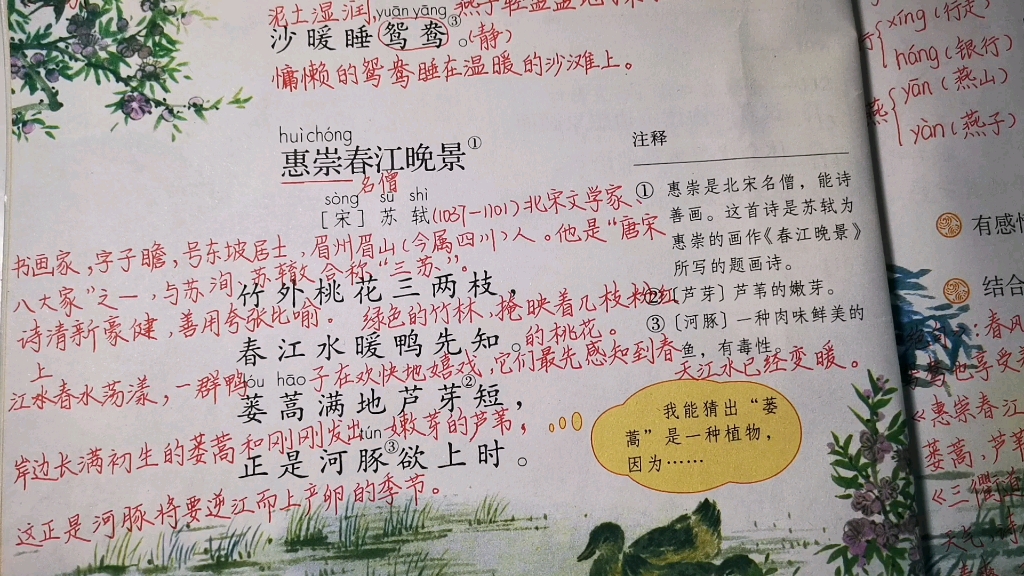 泥土湿润,燕子轻盈盈地
yuān yāng
沙暖睡鸳鸯③。(静)
慵懒的鸳鸯睡在温暖的沙滩上。
huì chóng
惠崇春江晚景①
名僧
sòng sū shì
[宋] 苏轼(1037-1101)北宋文学家、
书画家,字子瞻,号东坡居士,眉州眉山(今属四川)人。他是“唐宋
八大家”之一,与苏洵、苏辙合称“三苏”。
竹外桃花三两枝,
诗清新豪健,善用夸张比喻。 绿色的竹林,掩映着几枝粉红
的桃花。
春江水暖鸭先知。
上
江水春水荡漾,一群鸭子在欢快地嬉戏,它们最先感知到春
天江水已经变暖。
lóu hāo
蒌蒿满地芦芽②短,
岸边长满初生的蒌蒿和刚刚发出嫩芽的芦苇,
tún
正是河豚③欲上时。
这正是河豚将要逆江而上产卵的季节。
注释
① 惠崇是北宋名僧,能诗
善画。这首诗是苏轼为
惠崇的画作《春江晚景》
所写的题画诗。
②〔芦芽〕芦苇的嫩芽。
③〔河豚〕一种肉味鲜美的
鱼,有毒性。
我能猜出“蒌
蒿”是一种植物,
因为……
行
xíng(行走)
háng(银行)
燕
yān(燕山)
yàn(燕子)
有感情
结合
:春风
地享受
《惠崇春江
蒌蒿,芦芽
《三衢道